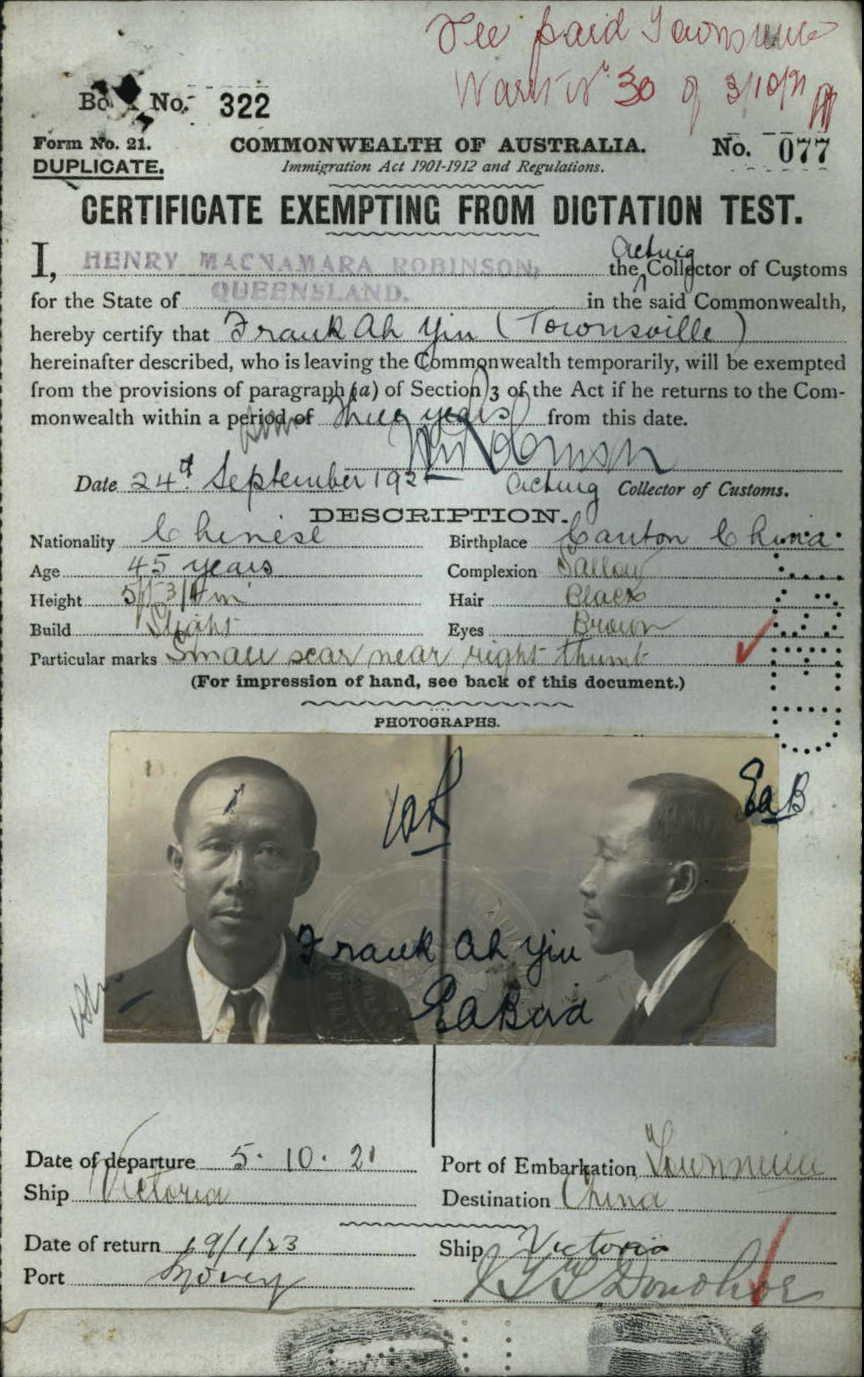 Fee paid Townsville
Warrt No 30 of 3/10/21
Book No. 322
Form No. 21.
COMMONWEALTH OF AUSTRALIA.
No. 077
DUPLICATE.
Immigration Act 1901-1912 and Regulations.
CERTIFICATE EXEMPTING FROM DICTATION TEST.
I, HENRY MACNAMARA ROBINSON, the Acting Collector of Customs
for the State of QUEENSLAND. in the said Commonwealth,
hereby certify that Frank Ah Yin (Townsville)
hereinafter described, who is leaving the Commonwealth temporarily, will be exempted
from the provisions of paragraph (a) of Section 3 of the Act if he returns to the Com-
monwealth within a period of three years from this date.
Date 24th September 192 Acting Collector of Customs.
DESCRIPTION.
Nationality Chinese Birthplace Canton China
Age 45 years Complexion Sallow
Height Hair Black
Build Slight Eyes Brown
Particular marks Small scar near right thumb
(For impression of hand, see back of this document.)
PHOTOGRAPHS.
EaB
Frank Ah Yin
Date of departure 5.10.21 Port of Embarkation Townsville
Ship Victoria Destination China
Date of return 19/1/23 Ship Victoria
Port Donohoe